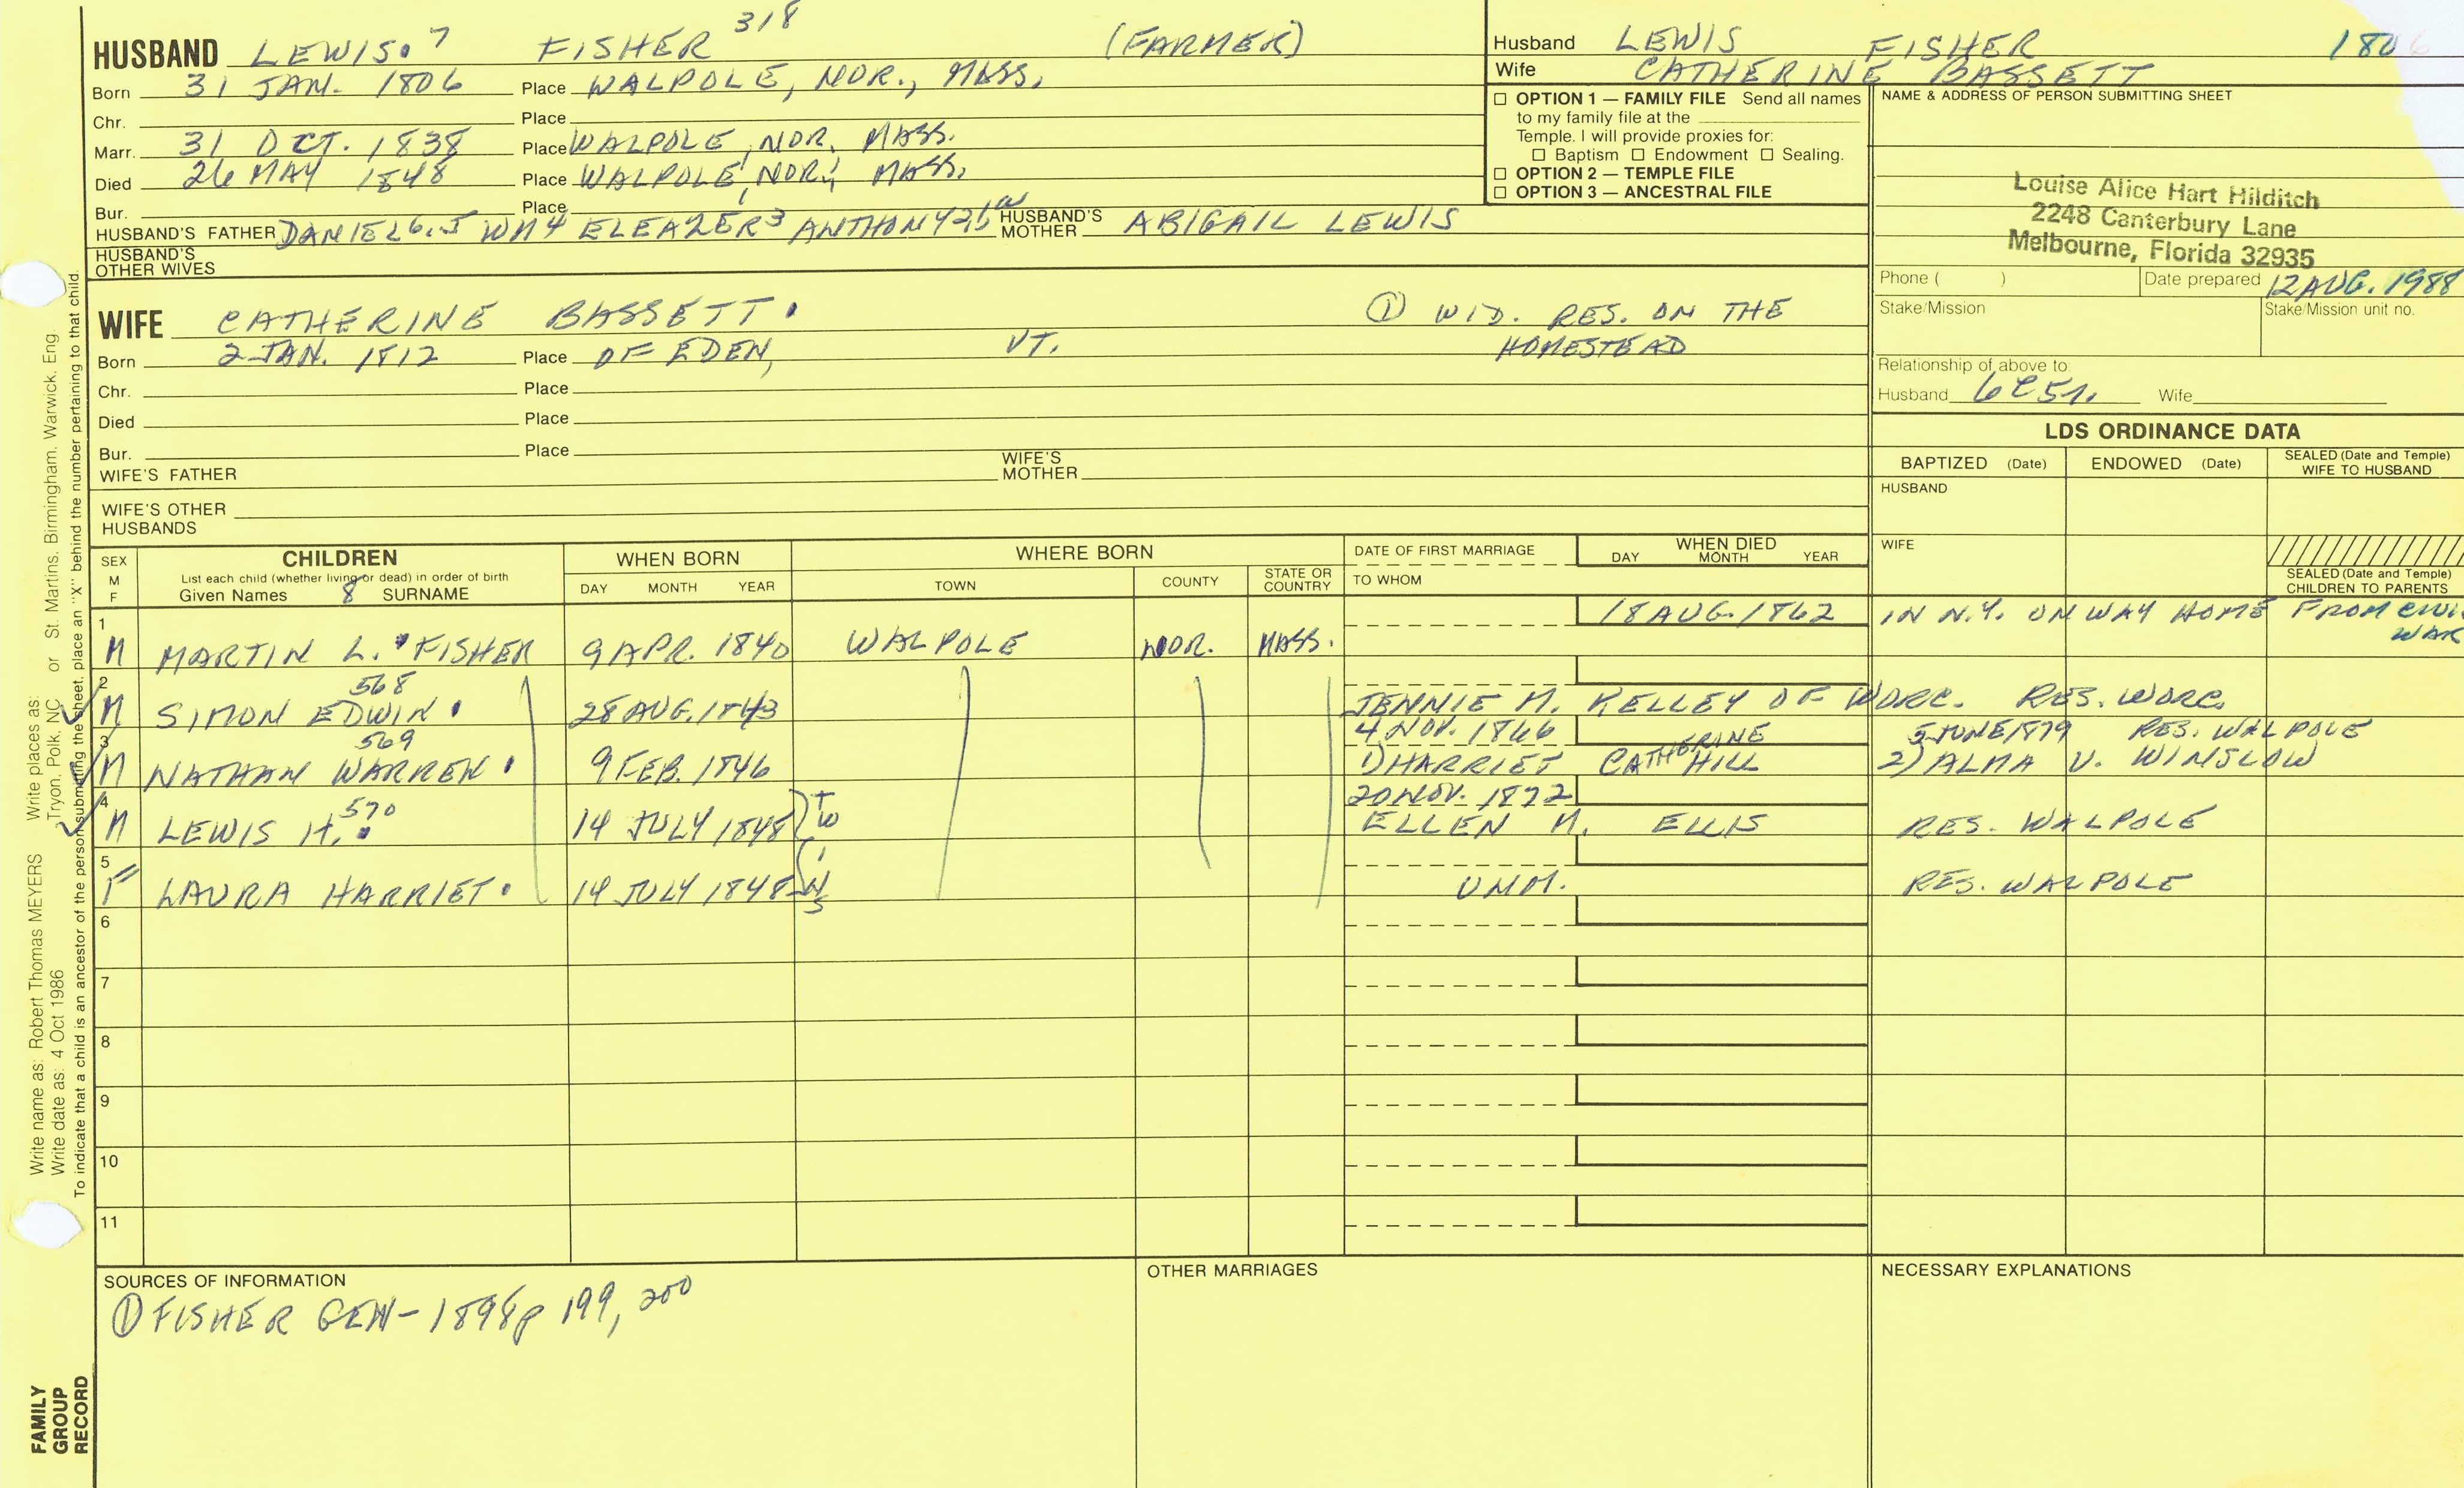 HUSBAND LEWIS. 7 FISHER 318 (FARMER)
Born 31 JAN. 1806 Place WALPOLE, NOR., MASS.
Chr. Place
Marr. 31 OCT. 1838 Place WALPOLE, NOR. MASS.
Died 26 MAY 1848 Place WALPOLE, NOR., MASS.
Bur. Place
HUSBAND'S FATHER DANIEL 6, 5 WM 4 ELEAZER 3 ANTHONY 2, 1 HUSBAND'S MOTHER ABIGAIL LEWIS
HUSBAND'S OTHER WIVES
WIFE CATHERINE BASSETT. ① WID. RES. ON THE
HOMESTEAD
Born 2 JAN. 1812 Place OF EDEN, VT.
Chr. Place
Died Place
Bur. Place
WIFE'S FATHER WIFE'S MOTHER
WIFE'S OTHER HUSBANDS
Husband LEWIS FISHER 1806
Wife CATHERINE BASSETT
☐ OPTION 1 — FAMILY FILE Send all names
to my family file at the
Temple. I will provide proxies for:
☐ Baptism ☐ Endowment ☐ Sealing.
☐ OPTION 2 — TEMPLE FILE
☐ OPTION 3 — ANCESTRAL FILE
NAME & ADDRESS OF PERSON SUBMITTING SHEET
Louise Alice Hart Hilditch
2248 Canterbury Lane
Melbourne, Florida 32935
Phone ( ) Date prepared 12 AUG. 1988
Stake/Mission Stake/Mission unit no.
Relationship of above to:
Husband 6C5R. Wife
LDS ORDINANCE DATA
BAPTIZED (Date) ENDOWED (Date) SEALED (Date and Temple) WIFE TO HUSBAND
HUSBAND
WIFE
SEALED (Date and Temple) CHILDREN TO PARENTS
SEX M F CHILDREN WHEN BORN WHERE BORN DATE OF FIRST MARRIAGE WHEN DIED
List each child (whether living or dead) in order of birth
Given Names 8 SURNAME DAY MONTH YEAR TOWN COUNTY STATE OR COUNTRY TO WHOM DAY MONTH YEAR
1 18 AUG. 1862 IN N.Y. ON WAY HOME FROM CIVIL WAR
M MARTIN L. FISHER 9 APR. 1840 WALPOLE NOR. MASS.
2 568
M SIMON EDWIN. 28 AUG. 1843 JENNIE M. KELLEY OF WORC. RES. WORC.
3 569 4 NOV. 1866 5 JUNE 1879 RES. WALPOLE
M NATHAN WARREN. 9 FEB. 1846 1) HARRIET CATHERINE HILL 2) ALMA V. WINSLOW
4 570 20 NOV. 1872
M LEWIS H. 14 JULY 1848 ELLEN M. ELLIS RES. WALPOLE
TWINS
5
F LAURA HARRIET. 14 JULY 1848 UNM. RES. WALPOLE
6
7
8
9
10
11
SOURCES OF INFORMATION OTHER MARRIAGES NECESSARY EXPLANATIONS
① FISHER GEN-1898 p 199, 200
Write name as: Robert Thomas MEYERS Write places as: Tryon, Polk, NC or St. Martins, Birmingham, Warwick, Eng
Write date as: 4 Oct 1986
To indicate that a child is an ancestor of the person submitting the sheet, place an "X" behind the number pertaining to that child.
FAMILY
GROUP
RECORD